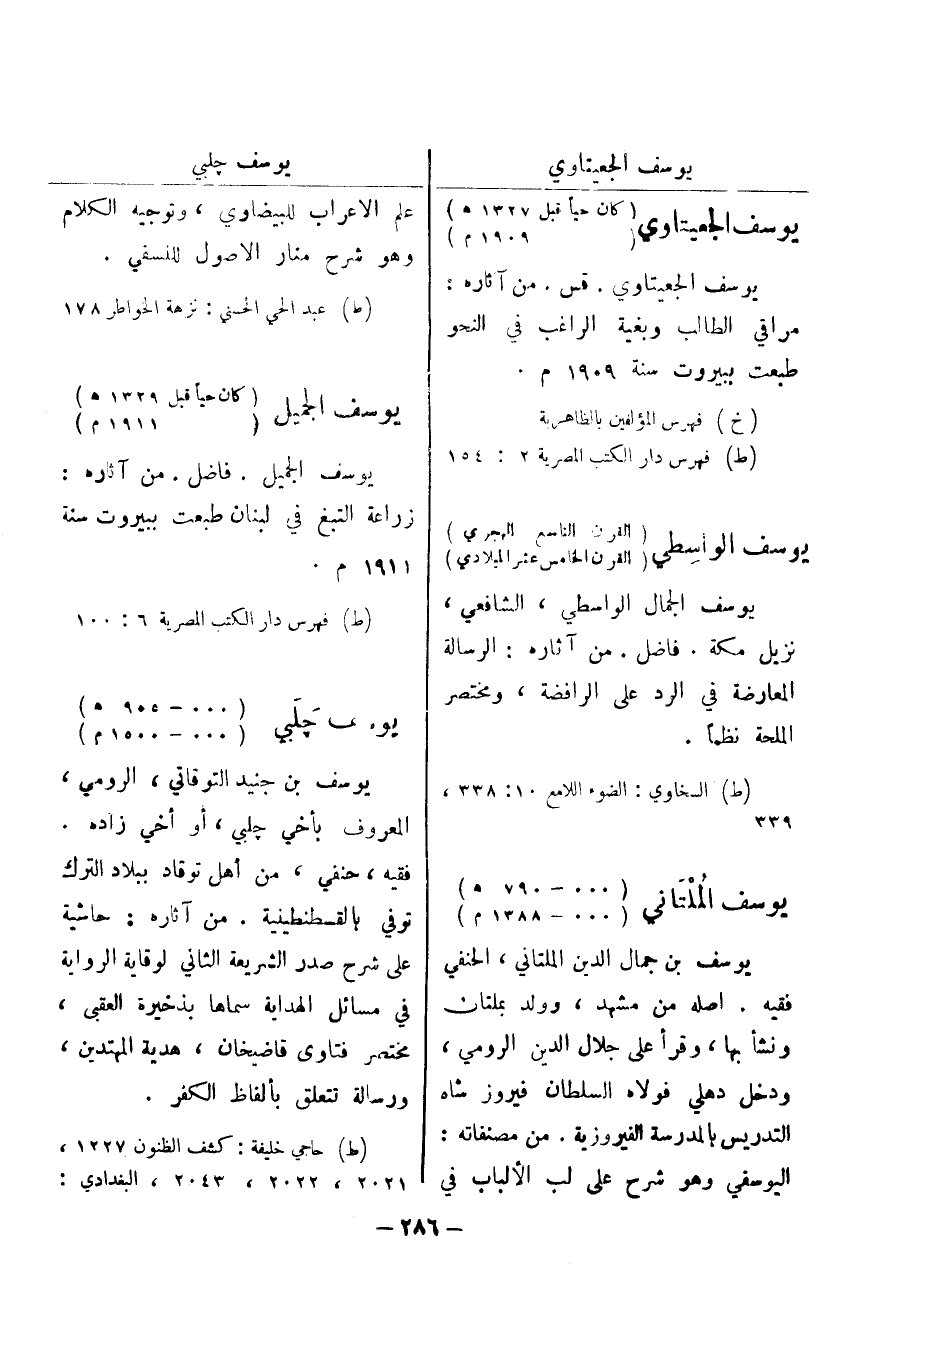 يوسف الجعيتاوي
يوسف الجعيتاوي ( كان حياً قبل ١٣٢٧ ه )
( ١٩٠٩ م )
يوسف الجعيتاوي . قس . من آثاره :
مراقي الطالب وبغية الراغب في النحو
طبعت ببيروت سنة ١٩٠٩ م .
( خ ) فهرس المؤلفين بالظاهرية
( ط ) فهرس دار الكتب المصرية ٢ : ١٥٤
يوسف الواسِطي ( القرن التاسع الهجري )
( القرن الخامس عشر الميلادي )
يوسف الجمال الواسطي ، الشافعي ،
نزيل مكة . فاضل . من آثاره : الرسالة
المعارضة في الرد على الرافضة ، ومختصر
الملحة نظماً .
( ط ) السخاوي : الضوء اللامع ١٠ : ٣٣٨ ،
٣٣٩
يوسف المُلْتَاني ( ٠٠٠ – ٧٩٠ ه )
( ٠٠٠ – ١٣٨٨ م )
يوسف بن جمال الدين الملتاني ، الحنفي
فقيه . اصله من مشهد ، وولد بملتان
ونشأ بها ، وقرأ على جلال الدين الرومي ،
ودخل دهلي فولاه السلطان فيروز شاه
التدريس بالمدرسة الفيروزية . من مصنفاته :
اليوسفي وهو شرح على لب الألباب في
يوسف چلبي
علم الاعراب للبيضاوي ، وتوجيه الكلام
وهو شرح منار الاصول للنسفي .
( ط ) عبد الحي الحسني : نزهة الخواطر ١٧٨
يوسف الجميل ( كان حياً قبل ١٣٢٩ ه )
( ١٩١١ م )
يوسف الجميل . فاضل . من آثاره :
زراعة التبغ في لبنان طبعت ببيروت سنة
١٩١١ م .
( ط ) فهرس دار الكتب المصرية ٦ : ١٠٠
يوسف چَلَبي ( ٠٠٠ – ٩٠٥ ه )
( ٠٠٠ – ١٥٠٠ م )
يوسف بن جنيد التوقاتي ، الرومي ،
المعروف بأخي چلبي ، أو أخي زاده .
فقيه ، حنفي ، من أهل توقاد ببلاد الترك
توفي بالقسطنطينية . من آثاره : حاشية
على شرح صدر الشريعة الثاني لوقاية الرواية
في مسائل الهداية سماها بذخيرة العقبى ،
مختصر فتاوى قاضيخان ، هدية المهتدين ،
ورسالة تتعلق بألفاظ الكفر .
( ط ) حاجي خليفة : كشف الظنون ١٢٢٧ ،
٢٠٢١ ، ٢٠٢٢ ، ٢٠٤٣ ، البغدادي :
– ٢٨٦ –